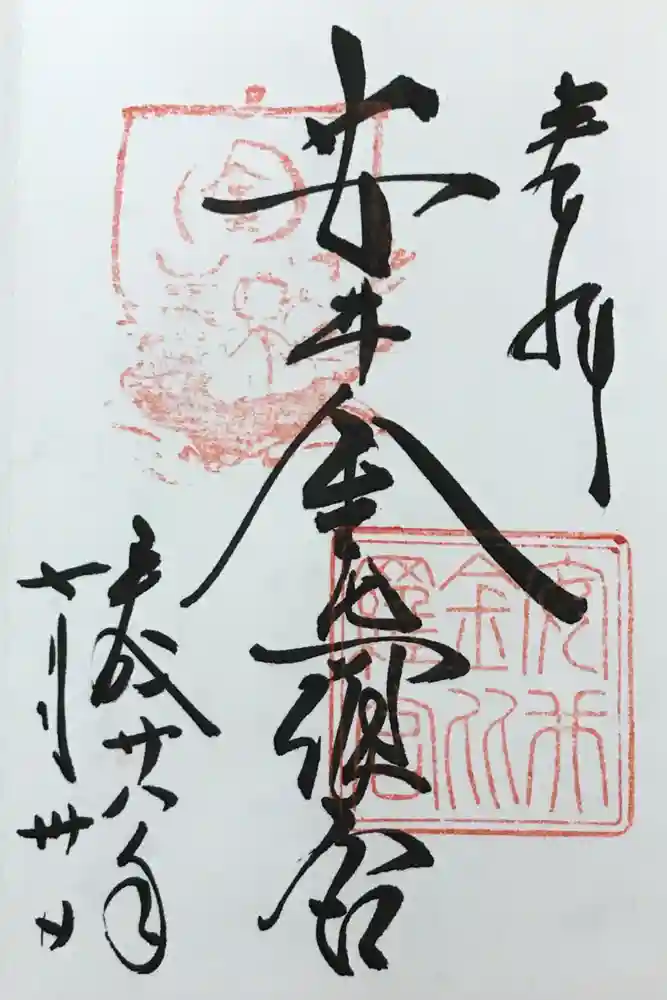 奉拝
安井金比羅宮
平成廿八年
七月卅日
安井
金比
羅宮
金